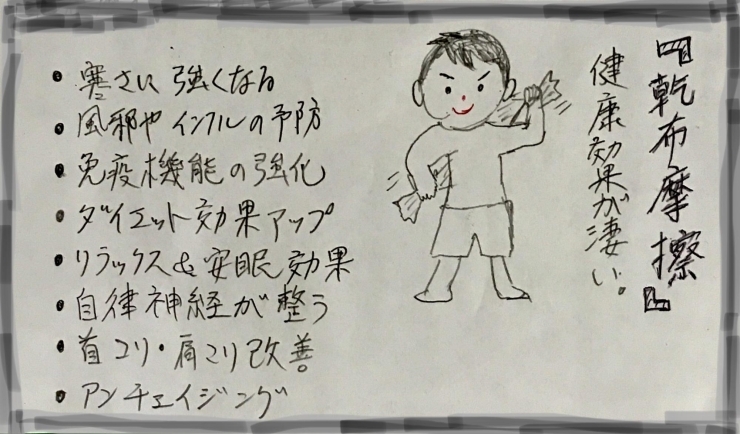 『乾布摩擦』
健康効果が凄い。
・寒さに強くなる
・風邪やインフルの予防
・免疫機能の強化
・ダイエット効果アップ
・リラックス&安眠効果
・自律神経が整う
・首コリ・肩こり改善。
・アンチエイジング